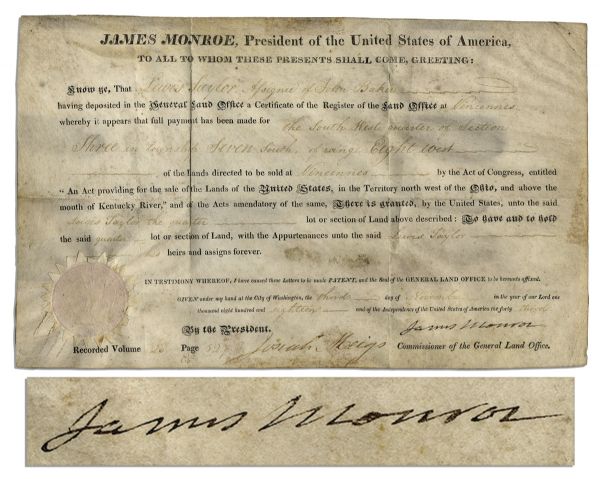 JAMES MONROE, President of the United States of America,
TO ALL TO WHOM THESE PRESENTS SHALL COME, GREETING:
Know ye, That Lewis Taylor Assignee of John Baker
having deposited in the General Land Office a Certificate of the Register of the Land Office at Vincennes
whereby it appears that full payment has been made for the South West quarter of Section
Three in township Seven South, of range Eight West
of the Lands directed to be sold at Vincennes by the Act of Congress, entitled
"An Act providing for the sale of the Lands of the United States, in the Territory north west of the Ohio, and above the
mouth of Kentucky River," and of the Acts amendatory of the same, There is granted, by the United States, unto the said
Lewis Taylor the quarter lot or section of Land above described: To have and to hold
the said quarter lot or section of Land, with the Appurtenances unto the said Lewis Taylor
his heirs and assigns forever.
IN TESTIMONY WHEREOF, I have caused these Letters to be made PATENT, and the Seal of the GENERAL LAND OFFICE to be hereunto affixed.
GIVEN under my hand at the City of Washington, the third day of in the year of our Lord one
thousand eight hundred and eighteen and of the Independence of the United States of America the forty third
By the President. James Monroe
Recorded Volume Page Josiah Meigs Commissioner of the General Land Office.
James Monroe